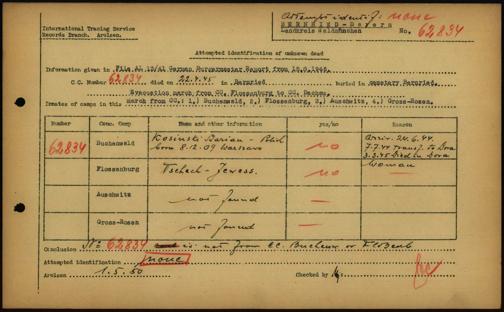 Attempt identif: none
International Tracing Service
Records Branch. Arolsen.
BERNRIED - Bayern
Landkreis Waldmünchen
No. 62834
Attempted identification of unknown dead
Information given in
German Burgermeister Report from
C.C. Number 62834 died on 22.4.45 in Bernried, buried in cemetery Bernried.
Evacuation march from CC. Flossenburg to CC. Dachau.
Inmates of camps in this march from CC.: 1.) Buchenwald, 2.) Flossenburg, 3.) Auschwitz, 4.) Gross-Rosen.
Number Conc. Camp Name and other information yes/no Remarks
62834 Buchenwald Kosinski Marian - Polish no Arriv. 24.6.44.
born 8.12.09 Warszawa 7.7.44 Transf. to Dora
3.3.45 Died in Dora
Flossenburg Tschech - Jewess. no Woman
Auschwitz not found —
Gross-Rosen not found —
Conclusion No 62834 is not from CC. Buchenw or Flossenb
Attempted identification none
Arolsen 1.5.50 Checked by